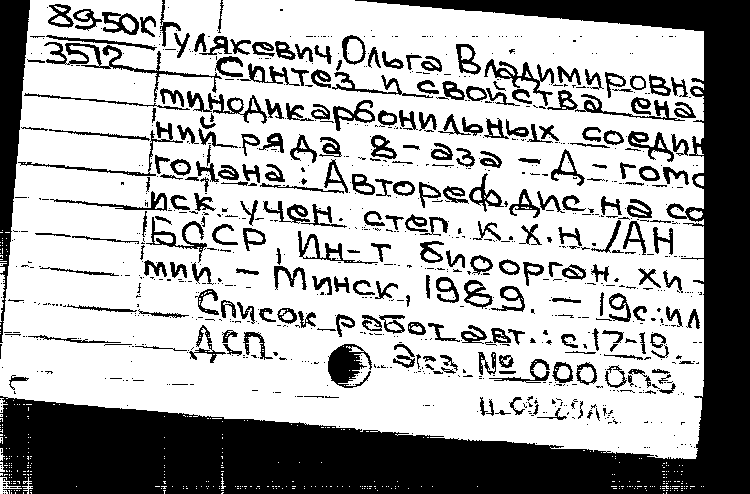 89-50к
3512
Гулякевич, Ольга Владимировна
Синтез и свойства ена
минодикарбонильных соедин
ний ряда 8-аза-Д-гомо
гонана: Автореф. дис. на со
иск. учен. степ. к.х.н. /АН
БССР, Ин-т биоорган. хи-
мии. - Минск, 1989. - 19с.: ил
Список работ авт.: с.17-19.
ДСП. Экз. № 000003